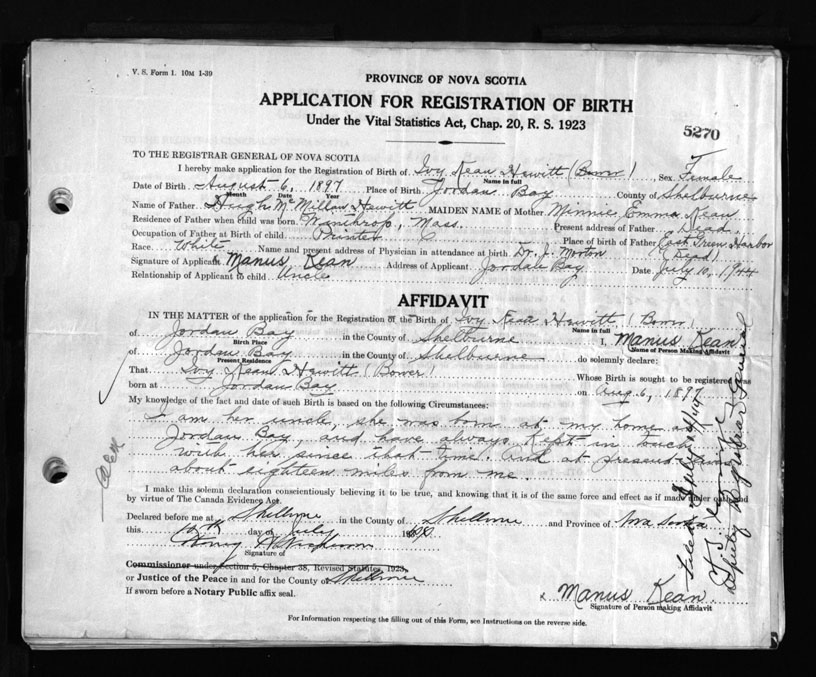 V. S. Form 1. 10M 1-39
PROVINCE OF NOVA SCOTIA
APPLICATION FOR REGISTRATION OF BIRTH
Under the Vital Statistics Act, Chap. 20, R. S. 1923
5270
TO THE REGISTRAR GENERAL OF NOVA SCOTIA
I hereby make application for the Registration of Birth of Ivy Kean Hewitt (Bower) Sex Female
Name in full
Date of Birth August 6, 1897 Place of Birth Jordan Bay County of Shelburne
Month Date Year
Name of Father Hugh McMillan Hewitt MAIDEN NAME of Mother Minnie Emma Kean
Residence of Father when child was born Winthrop, Mass. Present address of Father Dead.
Occupation of Father at Birth of child Printer Place of birth of Father Harbor
Race White Name and present address of Physician in attendance at birth Dr. J. Morton (Dead)
Signature of Applicant Manus Kean Address of Applicant Jordan Bay Date July 10, 1944
Relationship of Applicant to child Uncle
AFFIDAVIT
IN THE MATTER of the application for the Registration of the Birth of Ivy Kean Hewitt (Bower)
Name in full
of Jordan Bay in the County of Shelburne I, Manus Kean
Birth Place Name of Person Making Affidavit
of Jordan Bay in the County of Shelburne do solemnly declare:
Present Residence
That Ivy Kean Hewitt (Bower) Whose Birth is sought to be registered was
born at Jordan Bay on Aug 6, 1897
My knowledge of the fact and date of such Birth is based on the following Circumstances:
I am her uncle, she was born at my home at
Jordan Bay, and have always kept in touch
with her since that time. And at present
about eighteen miles from me.
I make this solemn declaration conscientiously believing it to be true, and knowing that it is of the same force and effect as if made under oath and
by virtue of The Canada Evidence Act.
Declared before me at Shelburne in the County of Shelburne and Province of Nova Scotia
this day of July
Signature of
Commissioner under Section 5, Chapter 38, Revised Statutes, 1923,
or Justice of the Peace in and for the County of Shelburne
If sworn before a Notary Public affix seal.
x Manus Kean
Signature of Person making Affidavit
For Information respecting the filling out of this Form, see Instructions on the reverse side.
Filed July
Deputy Registrar General